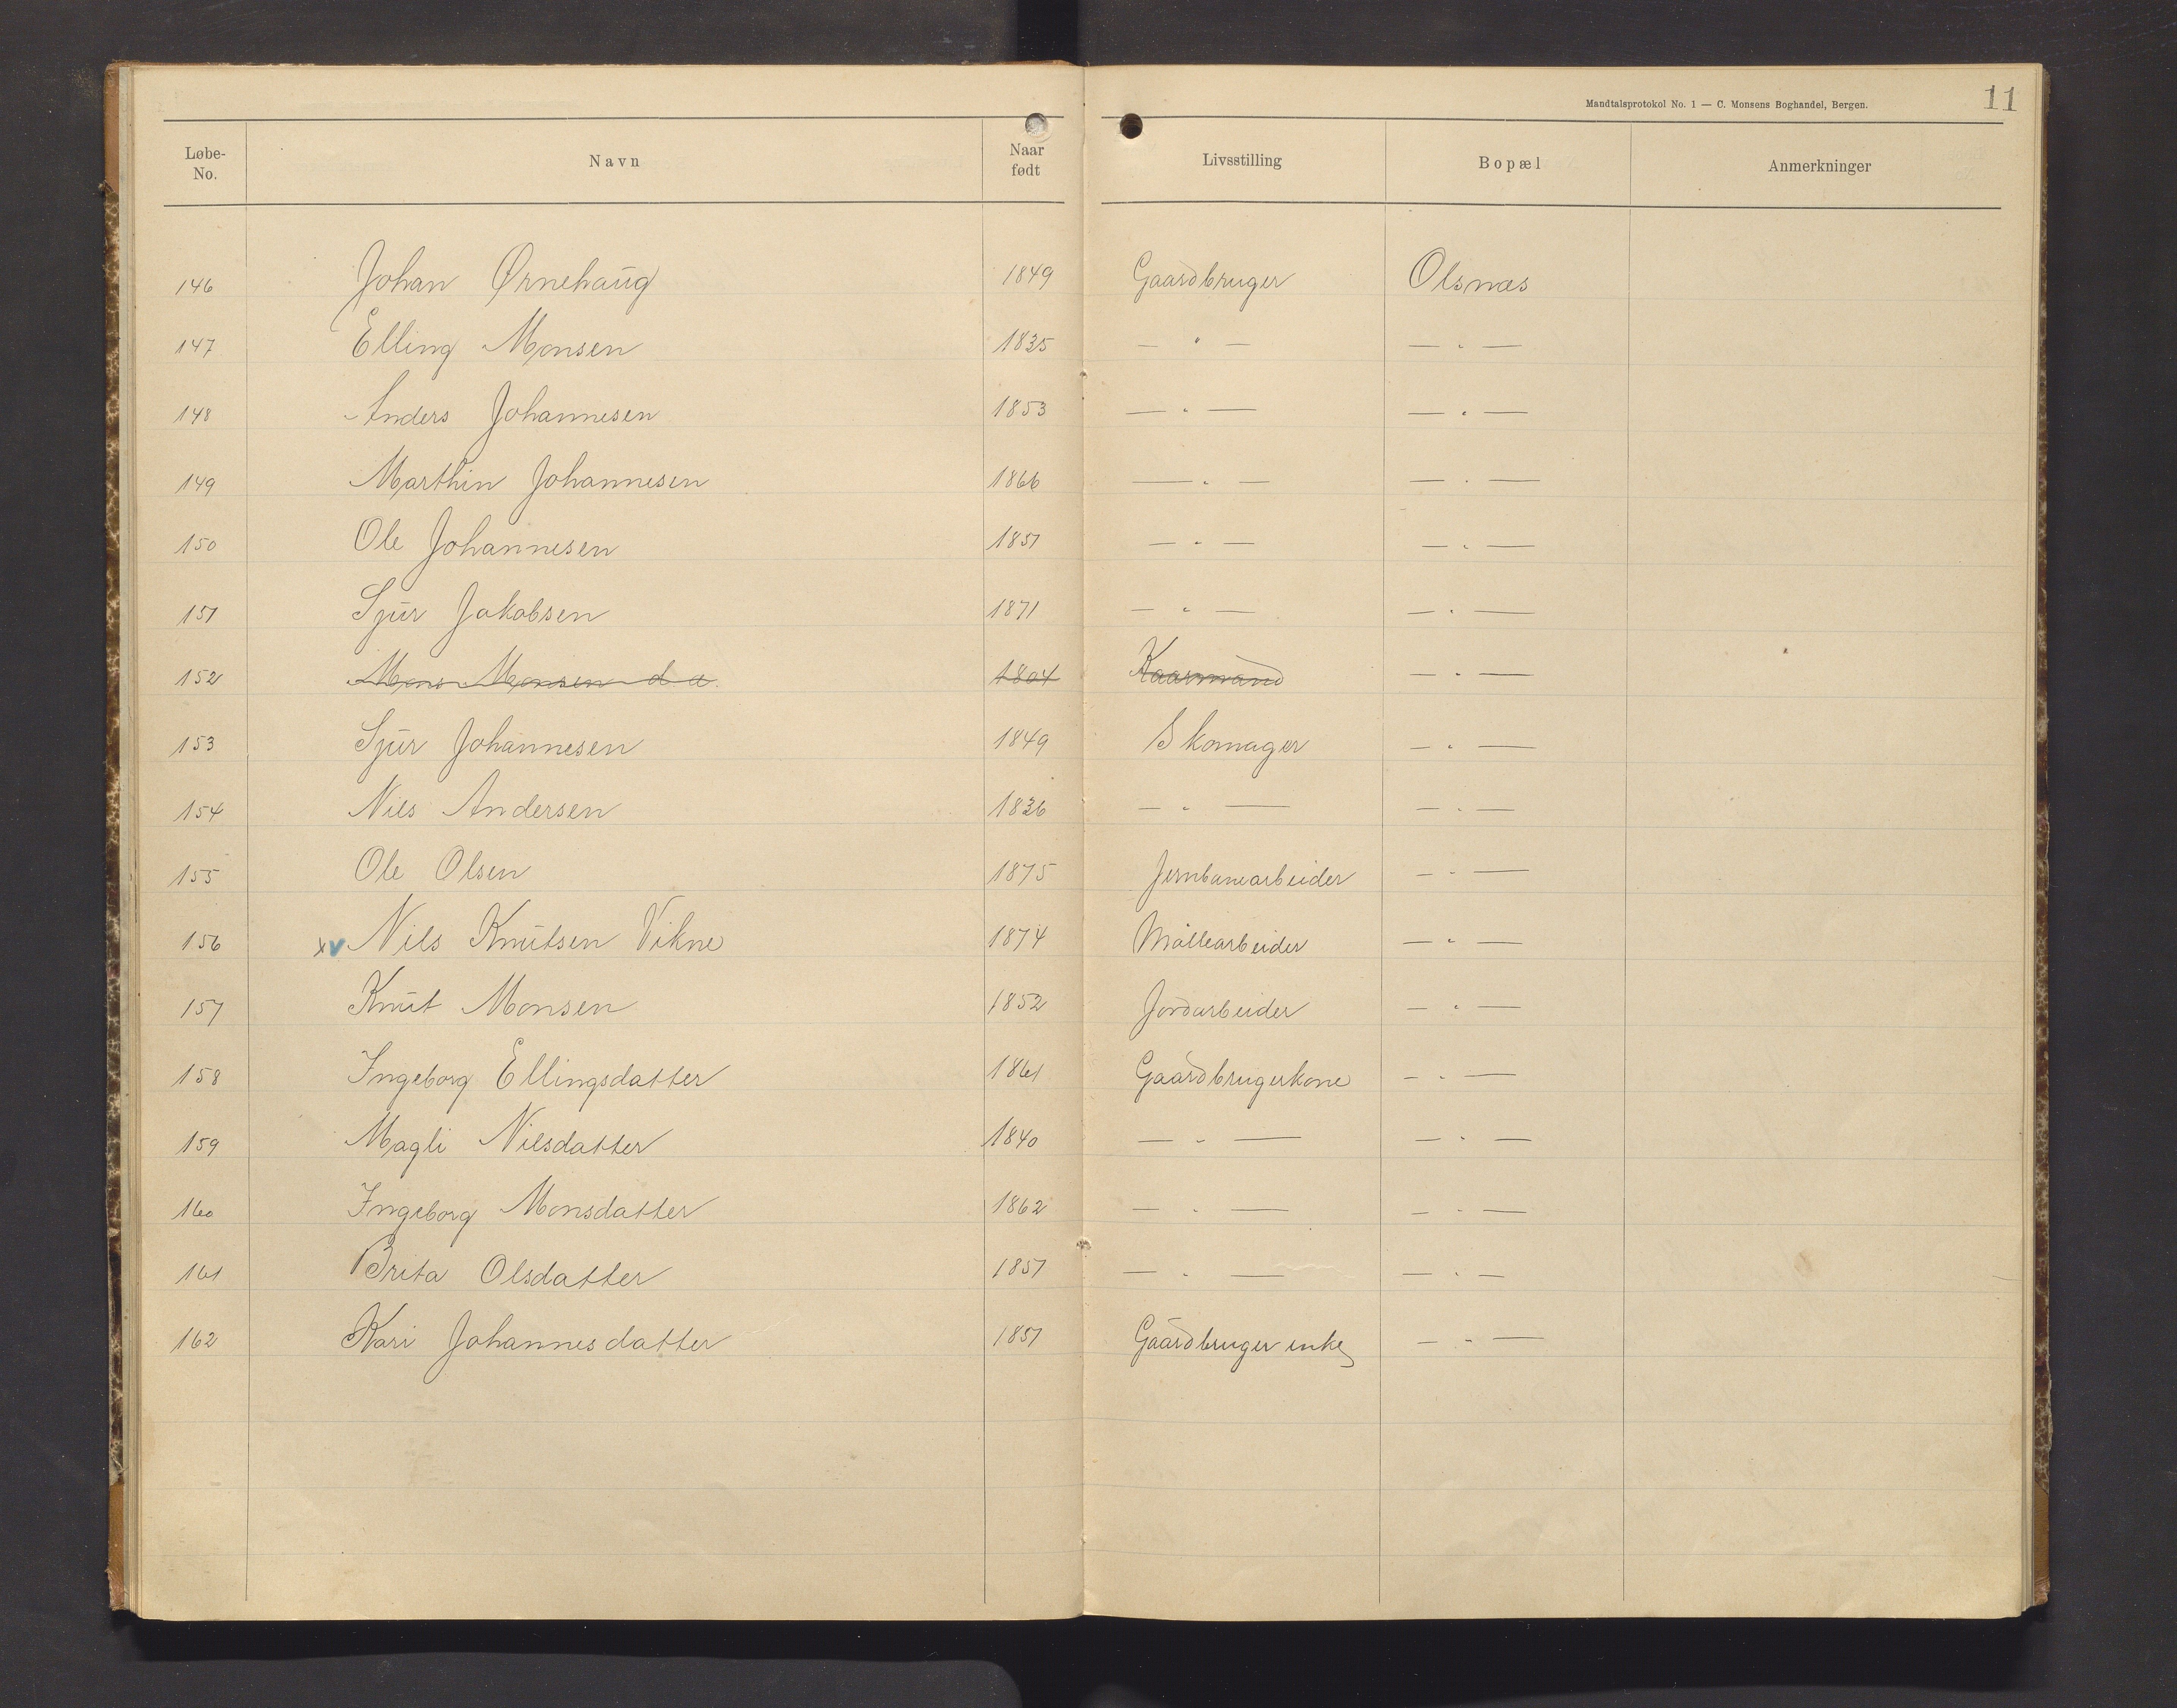 Mandtalsprotokol No. 1 — C. Monsens Boghandel, Bergen. 11
Løbe-No. Navn Naar født Livsstilling Bopæl Anmerkninger
146 Johan Ørnehaug 1849 Gaardbruger Olsnæs
147 Elling Monsen 1835 — " — — " —
148 Anders Johannesen 1853 — " — — " —
149 Marthin Johannesen 1866 — " — — " —
150 Ole Johannesen 1851 — " — — " —
151 Sjur Jakobsen 1871 — " — — " —
152 Mons Monsen d æ. 1804 Kaarmand — " —
153 Sjur Johannesen 1849 Skomager — " —
154 Nils Andersen 1836 — " — — " —
155 Ole Olsen 1875 Jernbanearbeider — " —
156 x v Nils Knutsen Vikne 1874 Møllearbeider — " —
157 Knut Monsen 1852 Jordarbeider — " —
158 Ingeborg Ellingsdatter 1861 Gaardbrugerkone — " —
159 Magli Nilsdatter 1840 — " — — " —
160 Ingeborg Monsdatter 1862 — " — — " —
161 Brita Olsdatter 1851 — " — — " —
162 Kari Johannesdatter 1851 Gaardbruger enke — " —